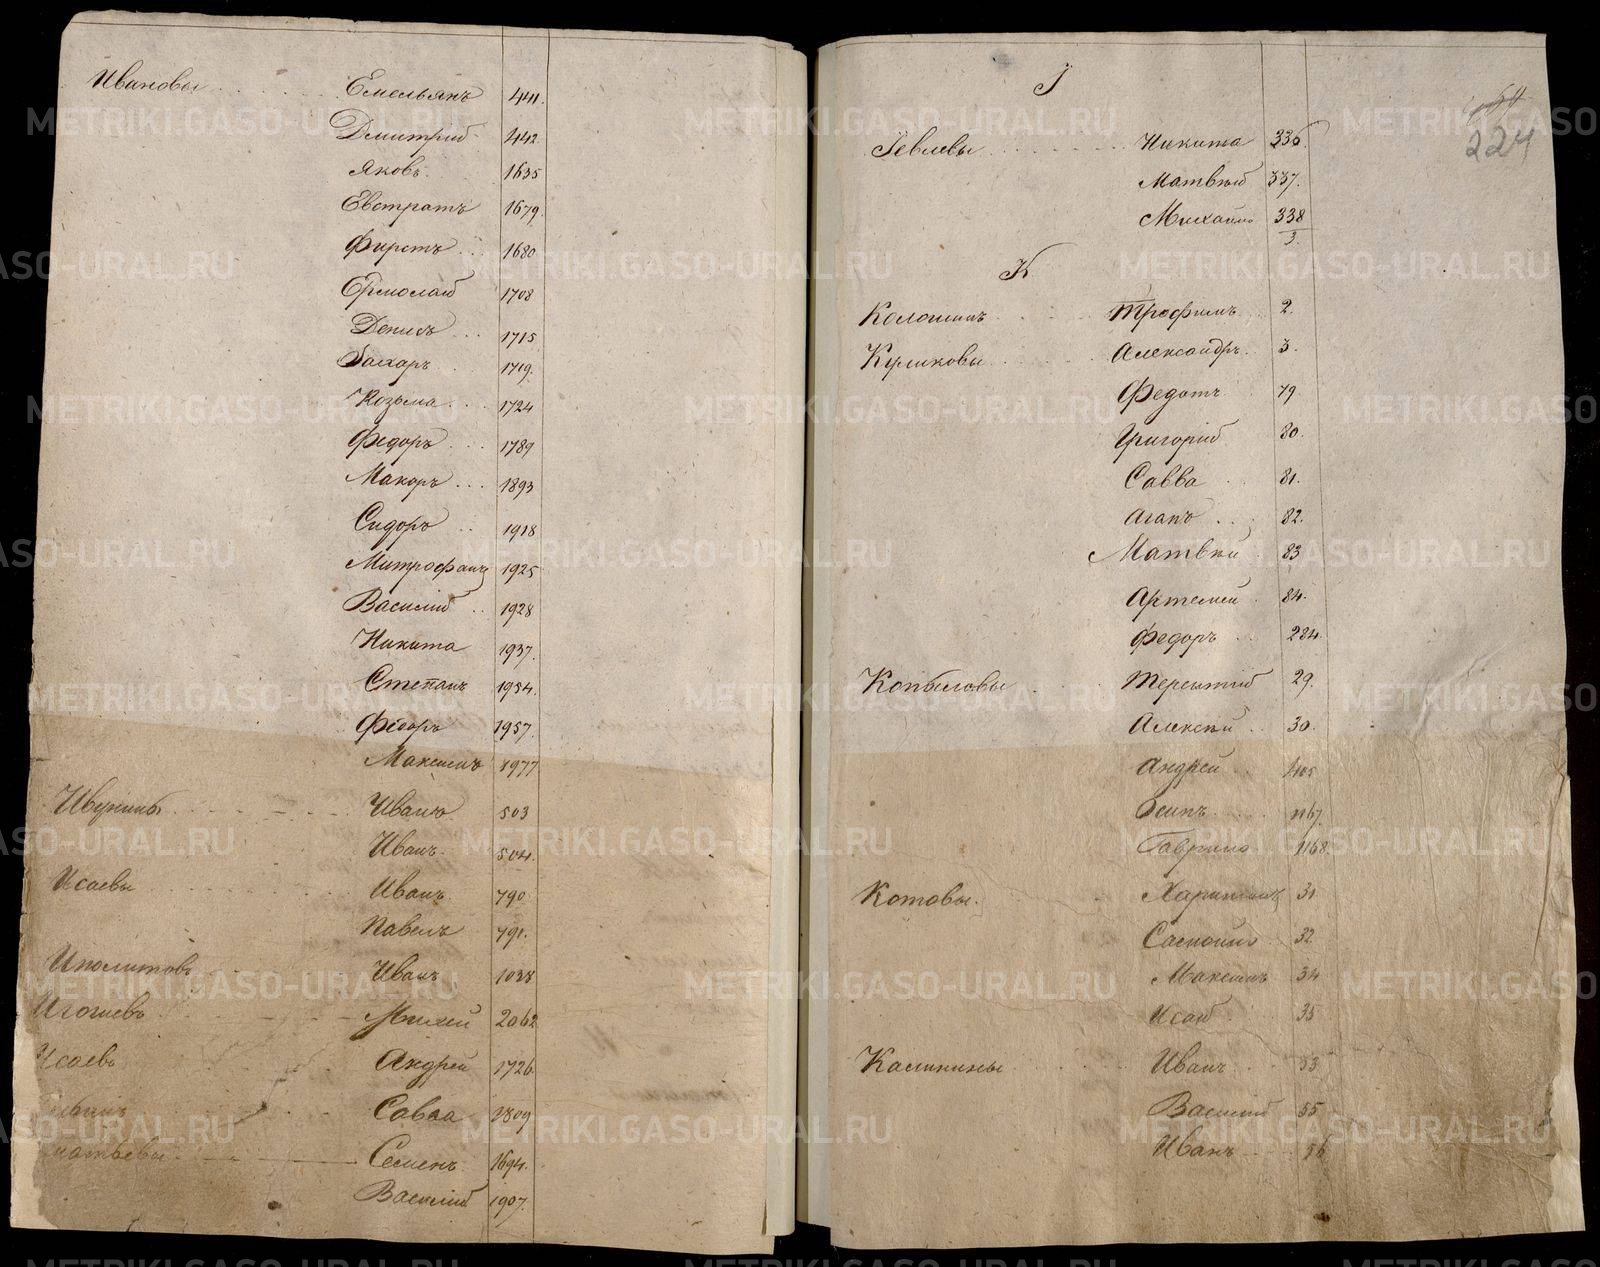 Ивановы Емельянъ 441.
Дмитрий 442
Яковъ 1635
Евстратъ 1679.
Фирстъ 1680
Ермолай 1708
Денисъ 1715
Захаръ 1719.
Козьма 1724
Федоръ 1789
Макаръ 1893
Сидоръ 1918
Митрофанъ 1925
Василий 1928
Никита 1937.
Степанъ 1954.
Федоръ 1957.
Максимъ 1977
Иванъ 503
Иванъ 504.
Исаевы Иванъ 790
Павелъ 791.
Иполитовъ Иванъ 1038
Михей 2062
Исаевъ Андрей 1726
Савва 1809
Семенъ 1694.
Василий 1907.
І
224
Іевлевы Никита 336.
Матвѣй 337.
Михайло 338
3.
К
Колошинъ Трофимъ 2.
Куликовы Александръ 3.
Федотъ 79
Григорій 80.
Савва 81.
Агапъ 82.
Матвѣй 83
Артемей 84.
Федоръ 284.
Копыловы Терентий 29.
Алексѣй 30.
Андрей 405
Осипъ 1167.
Гаврило 1168
Котовы. Харитонъ 31
Самойло 32
Максимъ 34
Исай 35
Калинины Иванъ 53
Василий 55
Иванъ 56
METRIKI.GASO-URAL.RU